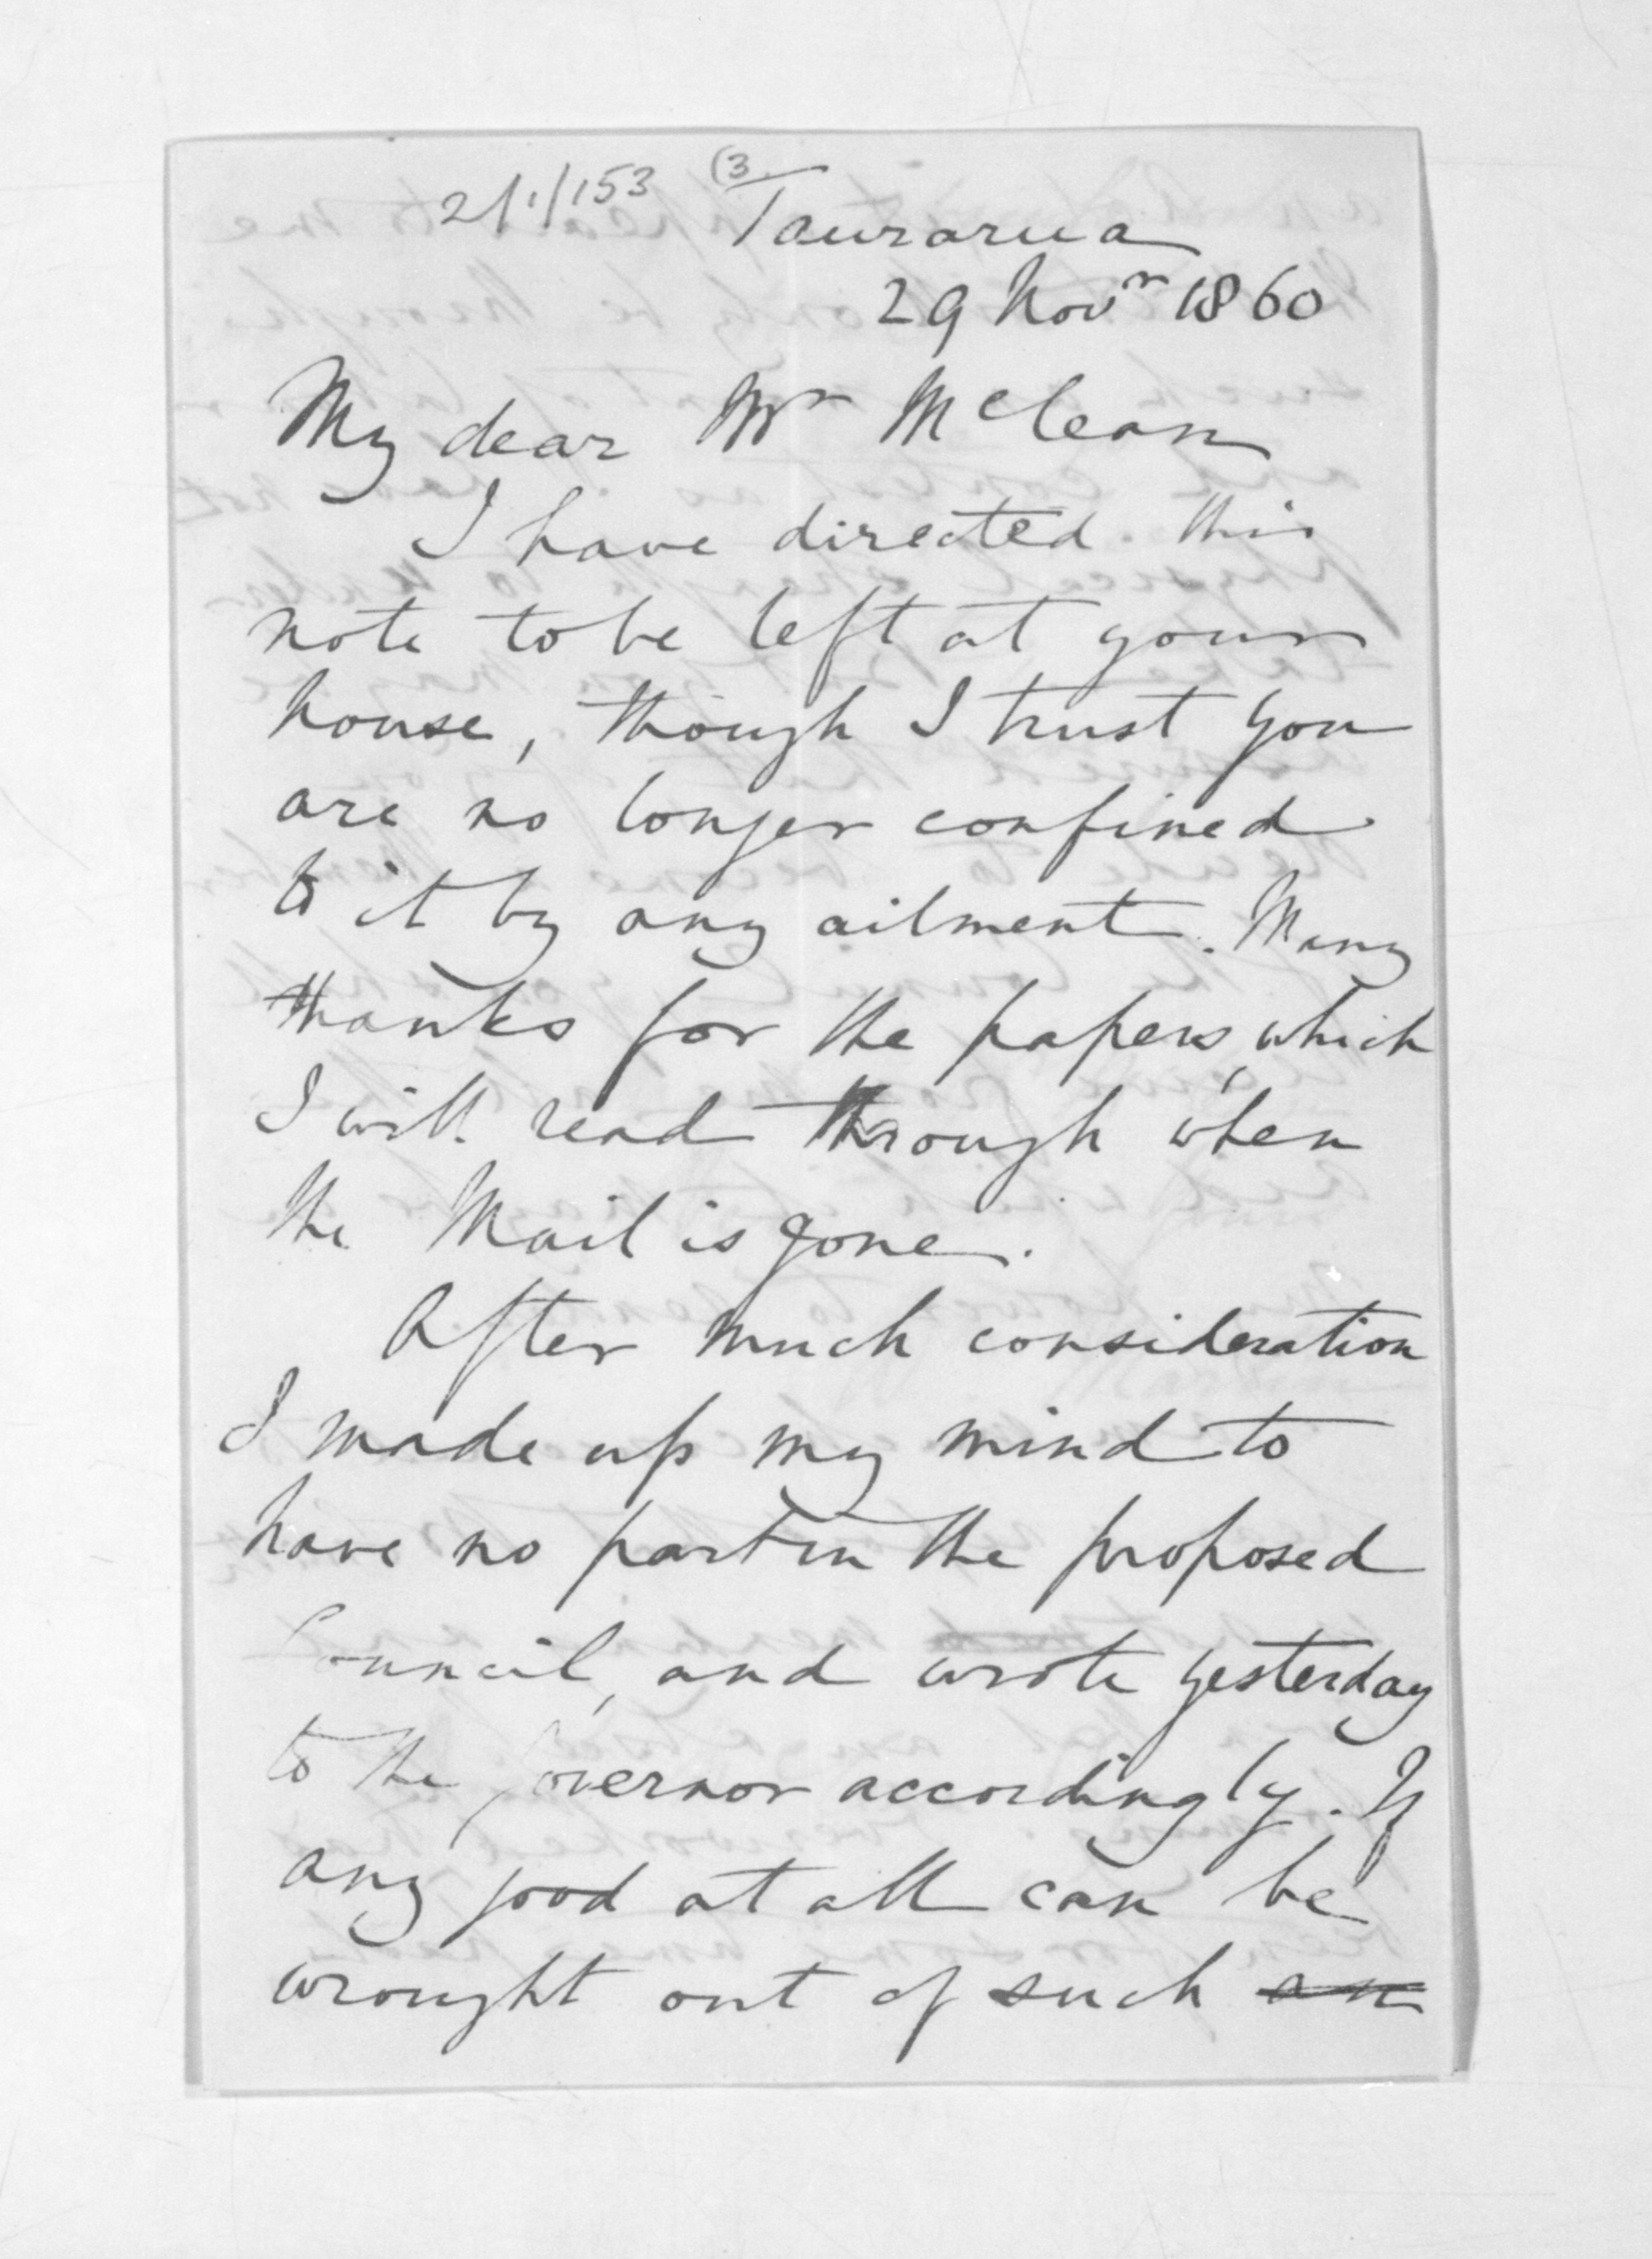 2/1/153 (3
Taurarua
29 Novr 1860
My dear Mr McLean
I have directed this
note to be left at your
house, though I trust you
are no longer confined
to it by any ailment. Many
thanks for the papers, which
I will read through when
the Mail is gone.
After much consideration
I made up my mind to
have no part in the proposed
Council, and wrote yesterday
to the Governor accordingly. If
any good at all can be
wrought out of such an